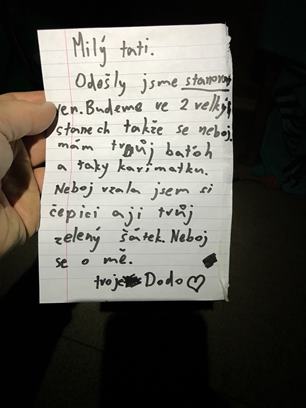 Milý tati.
Odešly jsme stanovat
ven. Budeme ve 2 velkých
stanech takže se neboj.
mám tvůj batoh
a taky karimatku.
Neboj vzala jsem si
čepici aji tvůj
zelený šátek. Neboj
se o mě.
tvoje Dodo ♡